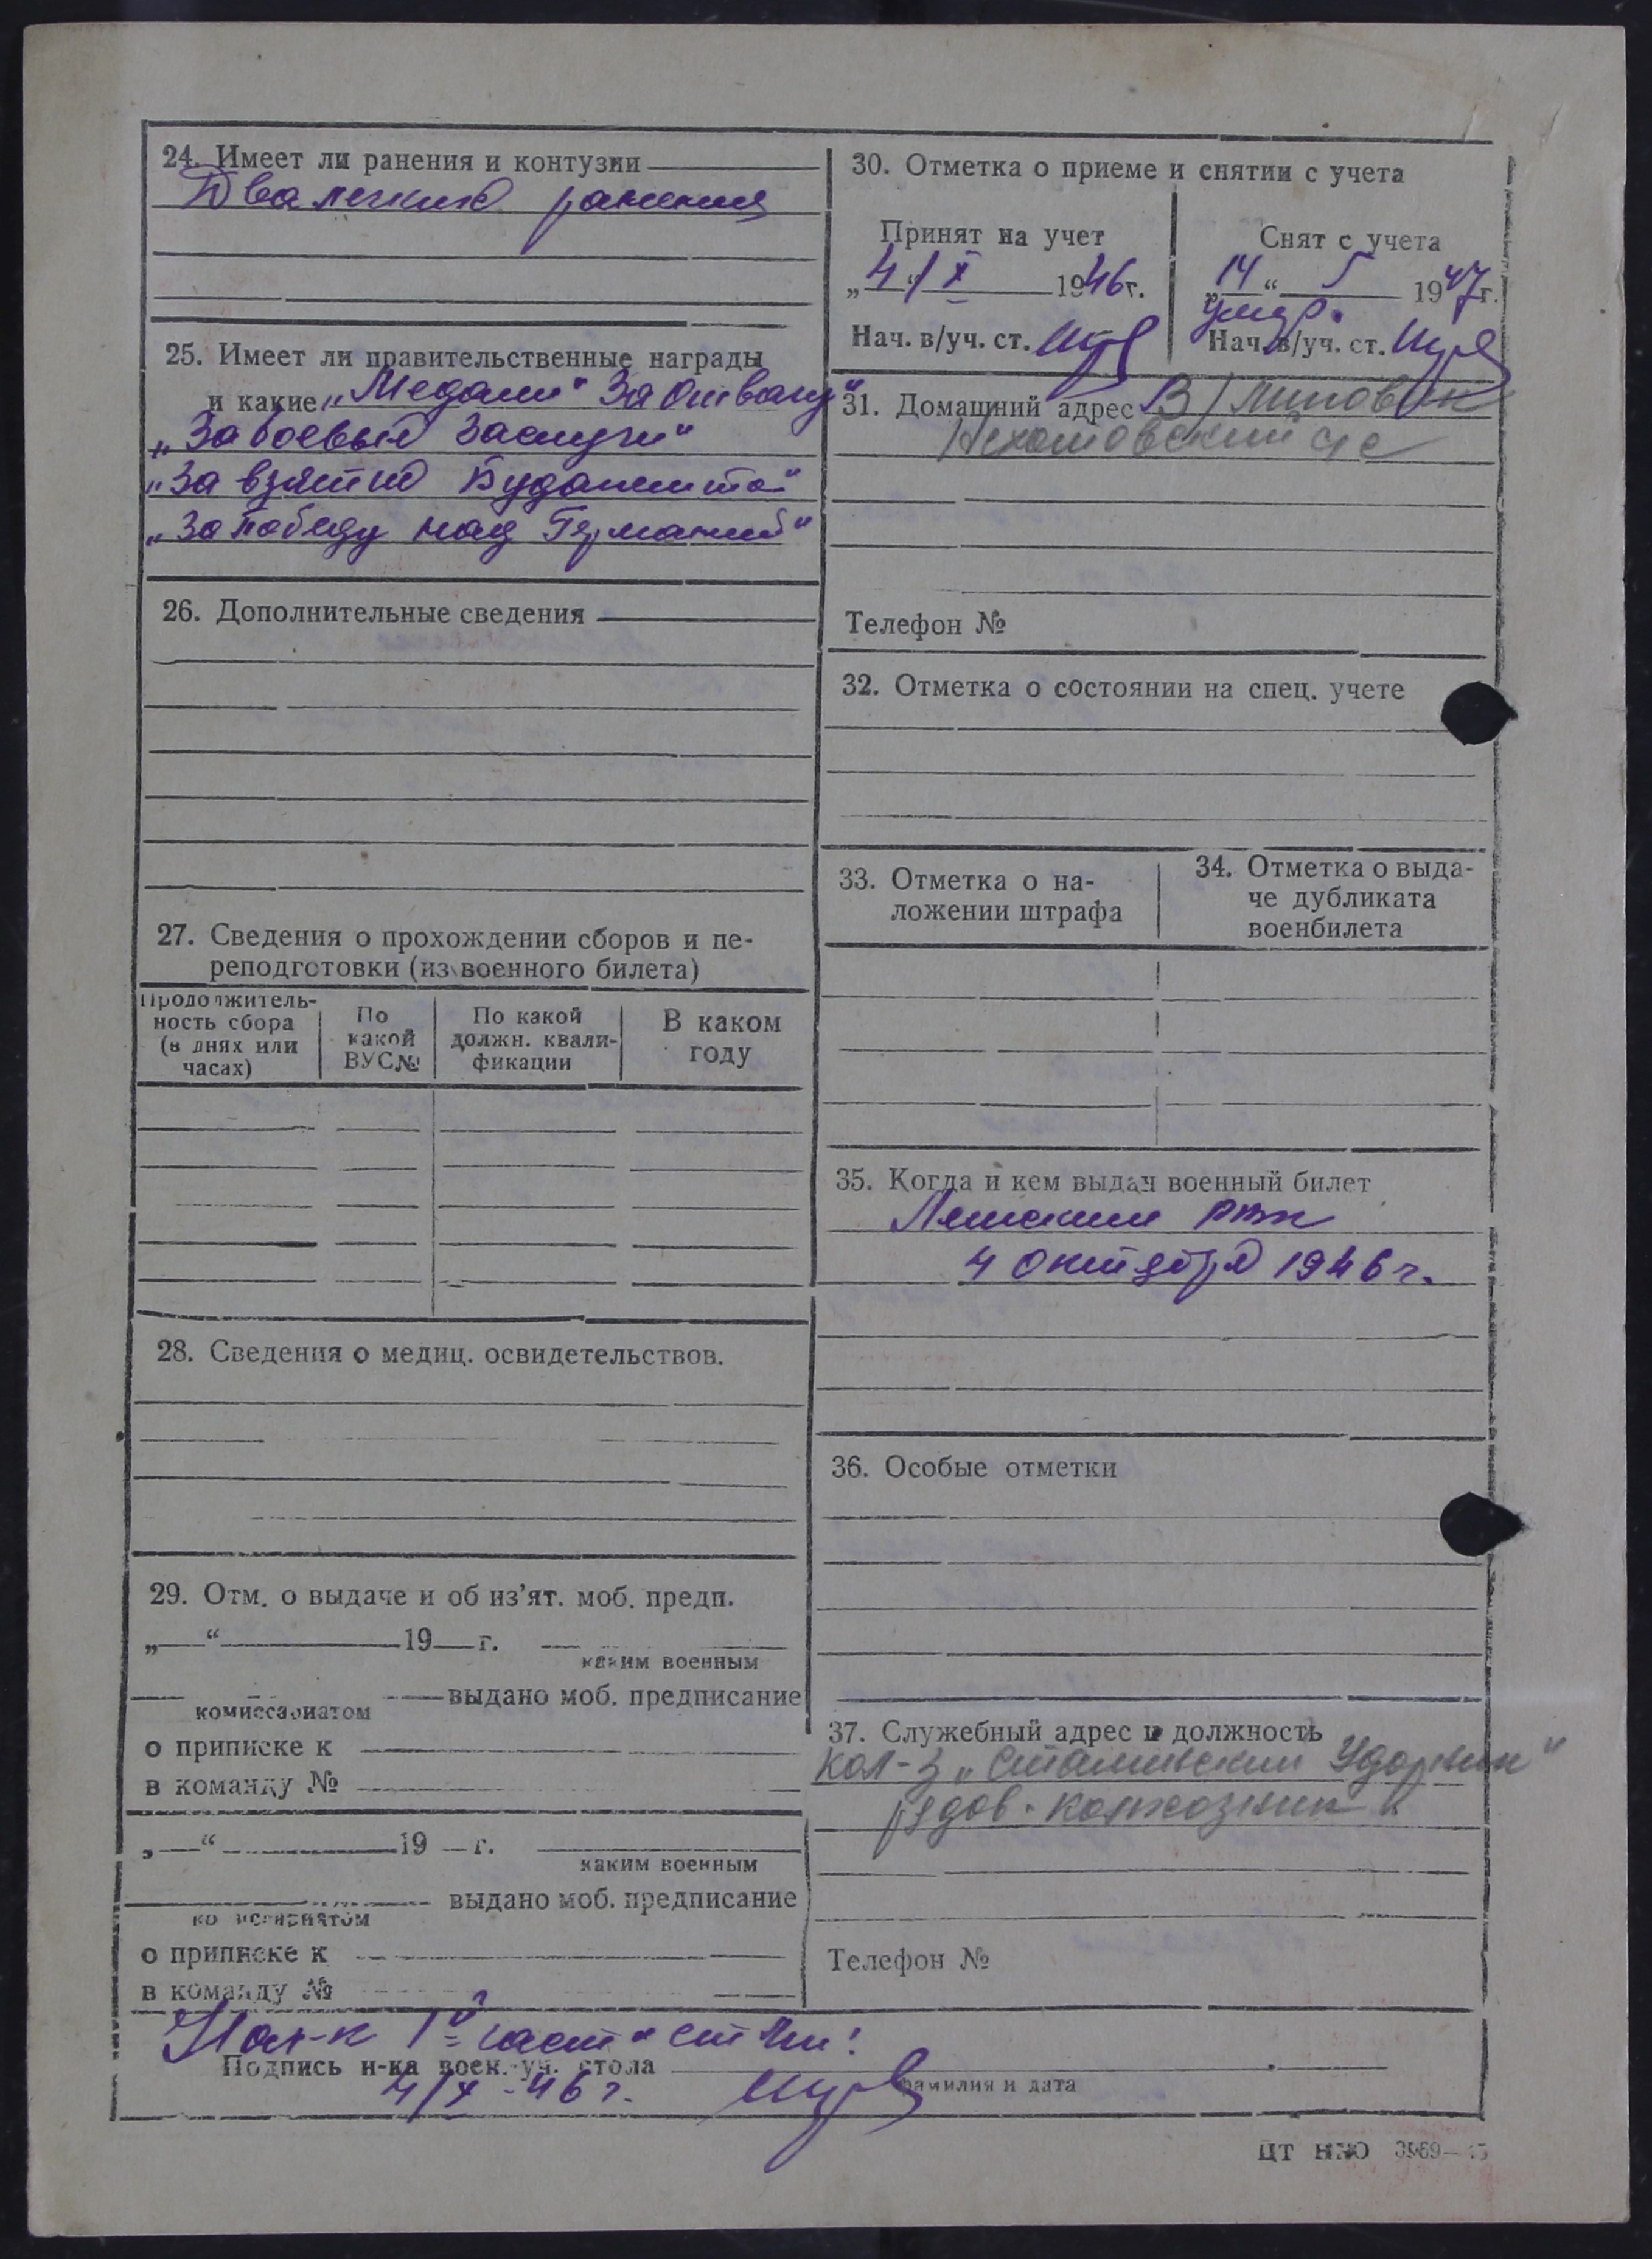 24. Имеет ли ранения и контузии
Два легких ранения
25. Имеет ли правительственные награды
и какие „Медали" За Отвагу"
„За боевые заслуги"
„За взятие Будапешта"
„За победу над Германией"
26. Дополнительные сведения
27. Сведения о прохождении сборов и пе-
реподготовки (из военного билета)
Продолжитель-
ность сбора
(в днях или
часах)
По
какой
ВУС№
По какой
должн. квали-
фикации
В каком
году
28. Сведения о медиц. освидетельствов.
29. Отм. о выдаче и об из’ят. моб. предп.
„—“ 19 г.
каким военным
выдано моб. предписание
комиссариатом
о приписке к
в команду №
„—“ 19 г.
каким военным
выдано моб. предписание
комиссариатом
о приписке к
в команду №
30. Отметка о приеме и снятии с учета
Принят на учет
„4/X 1946г.
Нач. в/уч. ст.
Снят с учета
„14“ 5 1947г.
умер.
Нач. в/уч. ст.
31. Домашний адрес В/Липовик
с/с
Телефон №
32. Отметка о состоянии на спец. учете
33. Отметка о на-
ложении штрафа
34. Отметка о выда-
че дубликата
военбилета
35. Когда и кем выдан военный билет
РВК
4 октября 1946 г.
36. Особые отметки
37. Служебный адрес и должность
кол-з „Сталинский Ударник"
рядов. колхозник
Телефон №
Нач-к 1й части ст. л-т:
Подпись н-ка воен.-уч. стола
4/X-46 г.
фамилия и дата
ЦТ НКО 3969—45